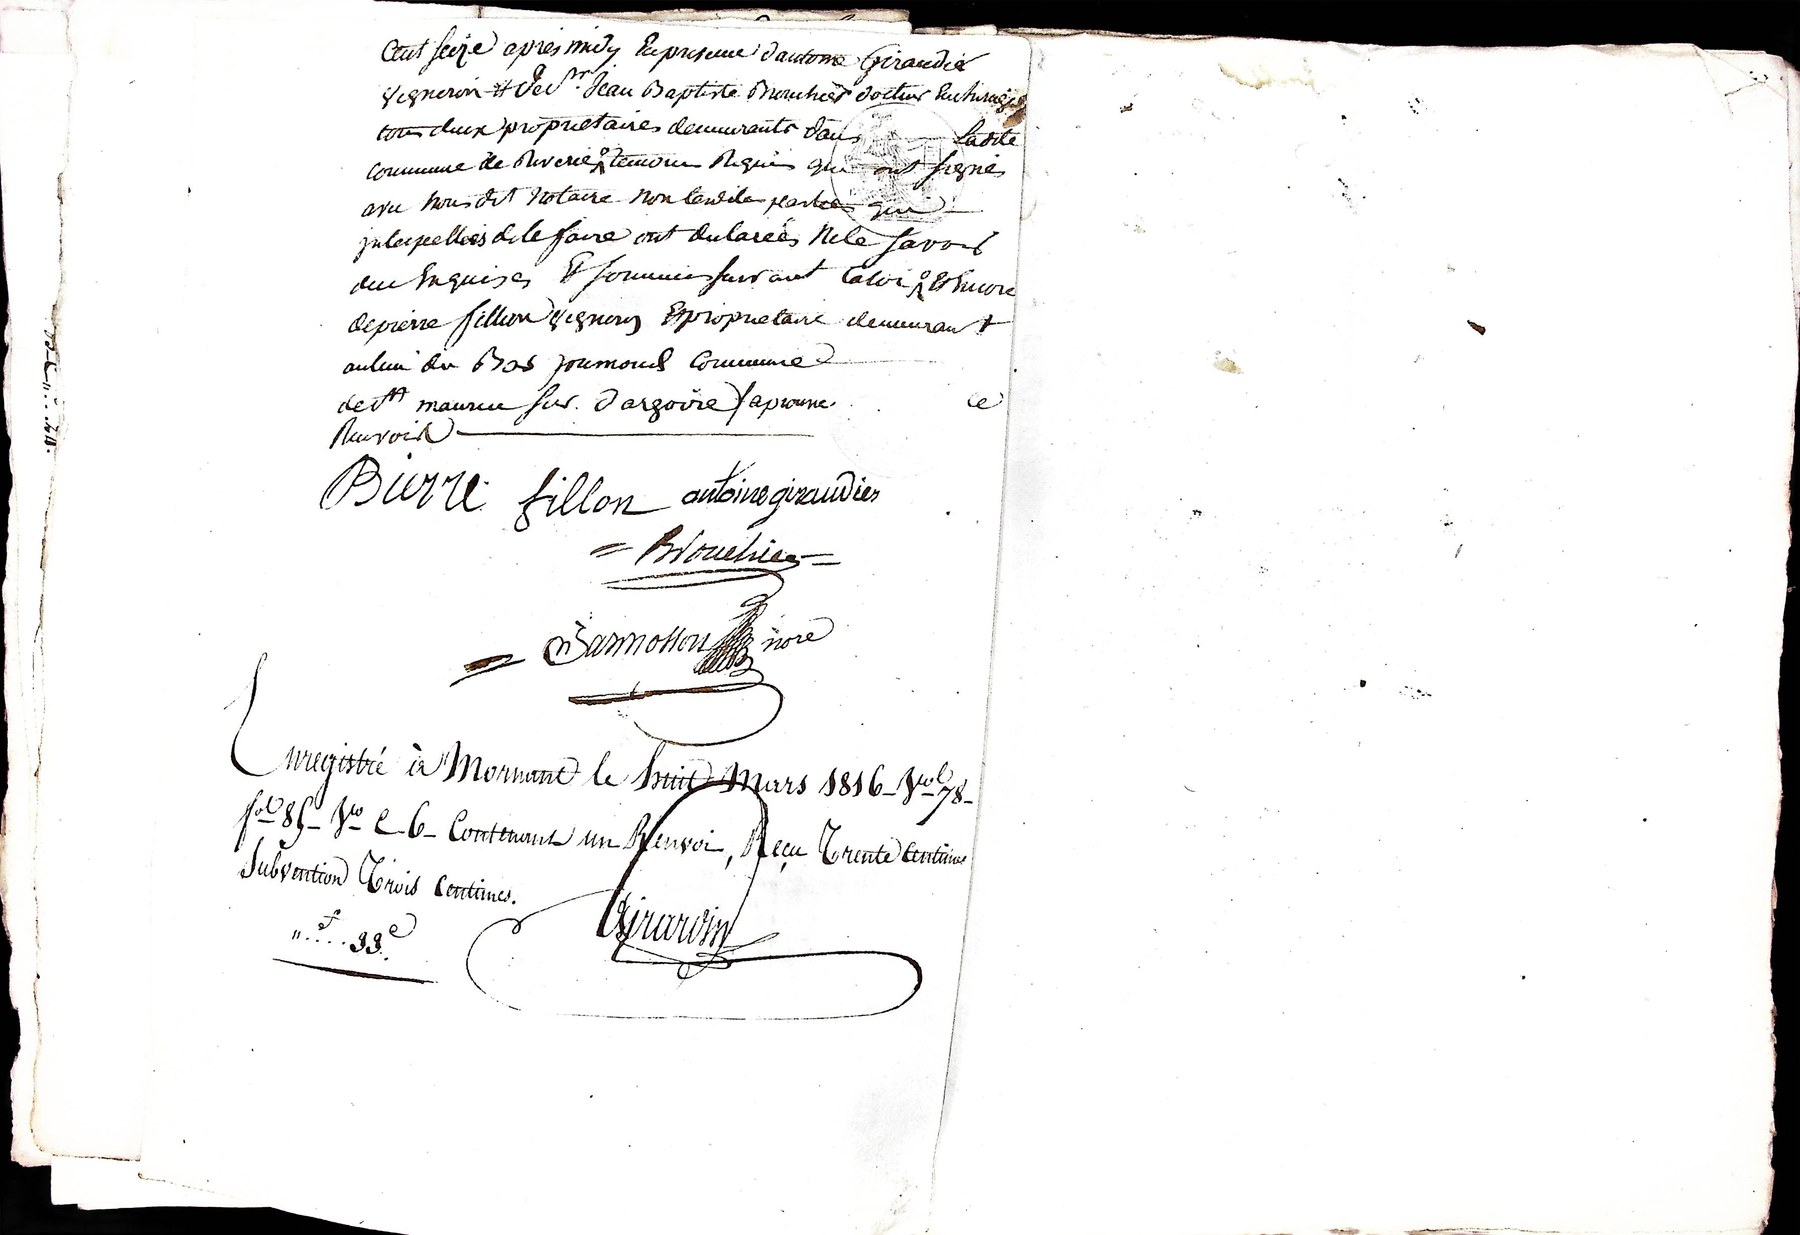 Cent Seize après midy En presence d'antoine Giraudier
Vigneron & de Sr. Jean Baptiste Brouchier docteur En chirurgie
tous deux proprietaires demeurants dans Ladite
commune de Riverie temoins Requis qui ont signés
avec nous dit Notaire non lesdites parties qui
interpellées de le faire ont declarées Ne le savoir
due Enquises Et sommées suivant la loi, & Encore
de pierre fillion Vigneron Et proprietaire demeurant
au lieu du Bas commune
de St. maurice sur d'argoire / aprouvé ce
Renvoi
Pierre fillon antoine giraudier
Brouchier
nore
Enregistré à Mornant le huit Mars 1816 - Vol. 78 -
fol. 85 - Vo C. 6 - Contenant un Renvoi, Reçu Trente Centimes
Subvention Trois Centimes.
" f .... 33 c.
Girardin